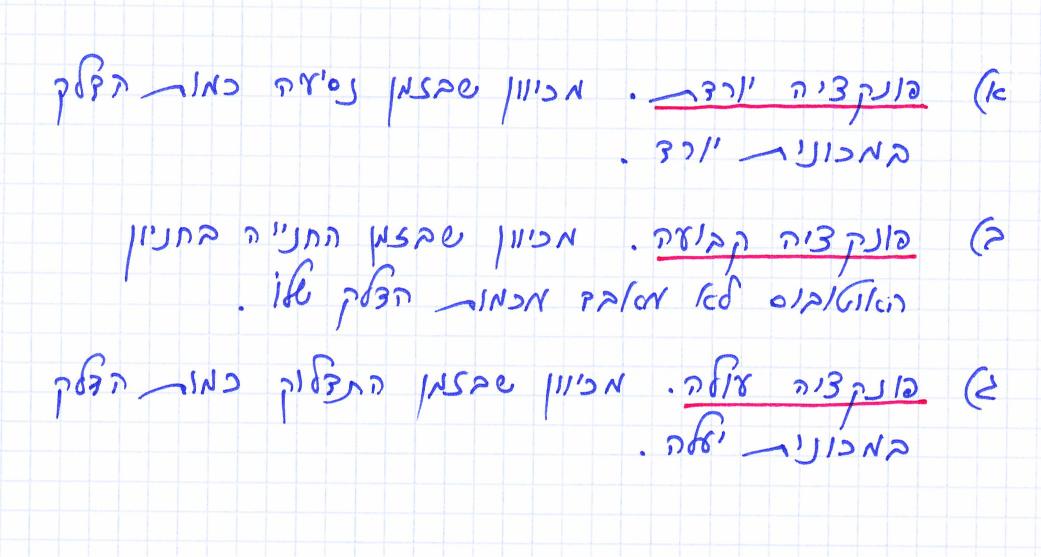 א) פונקציה יורדת. מכיוון שבזמן נסיעה כמות הדלק
במכונית יורד.
ב) פונקציה קבועה. מכיוון שבזמן החנייה בחניון
האוטובוס לא מאבד מכמות הדלק שלו.
ג) פונקציה עולה. מכיוון שבזמן התדלוק כמות הדלק
במכונית יעלה.